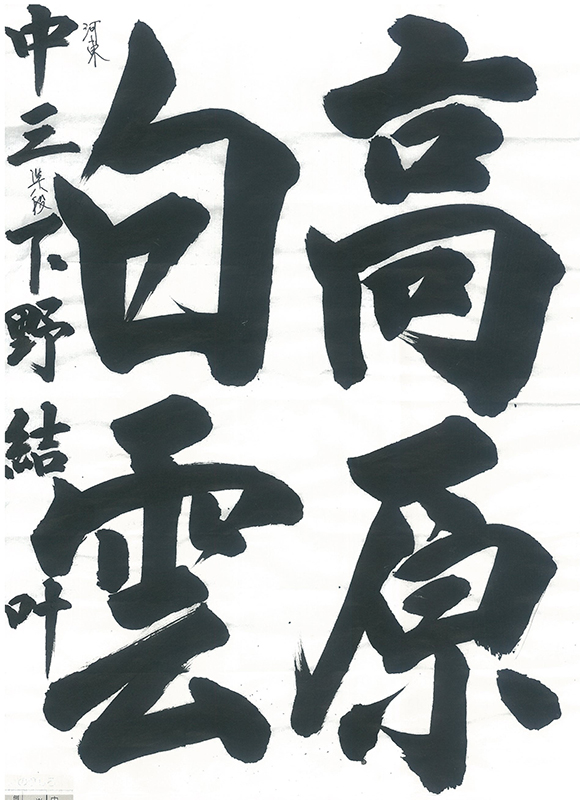 高原
白雲
河東
中三 準段 下野結叶